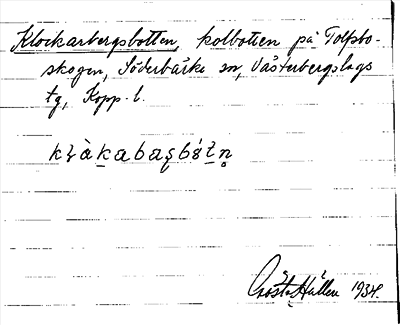 Klockarbergsbotten, kolbotten på Tolpbo-
skogen, Söderbärke sn, Västerbergslags
tg, Kopp. l.
Gösta Hallen 1934.